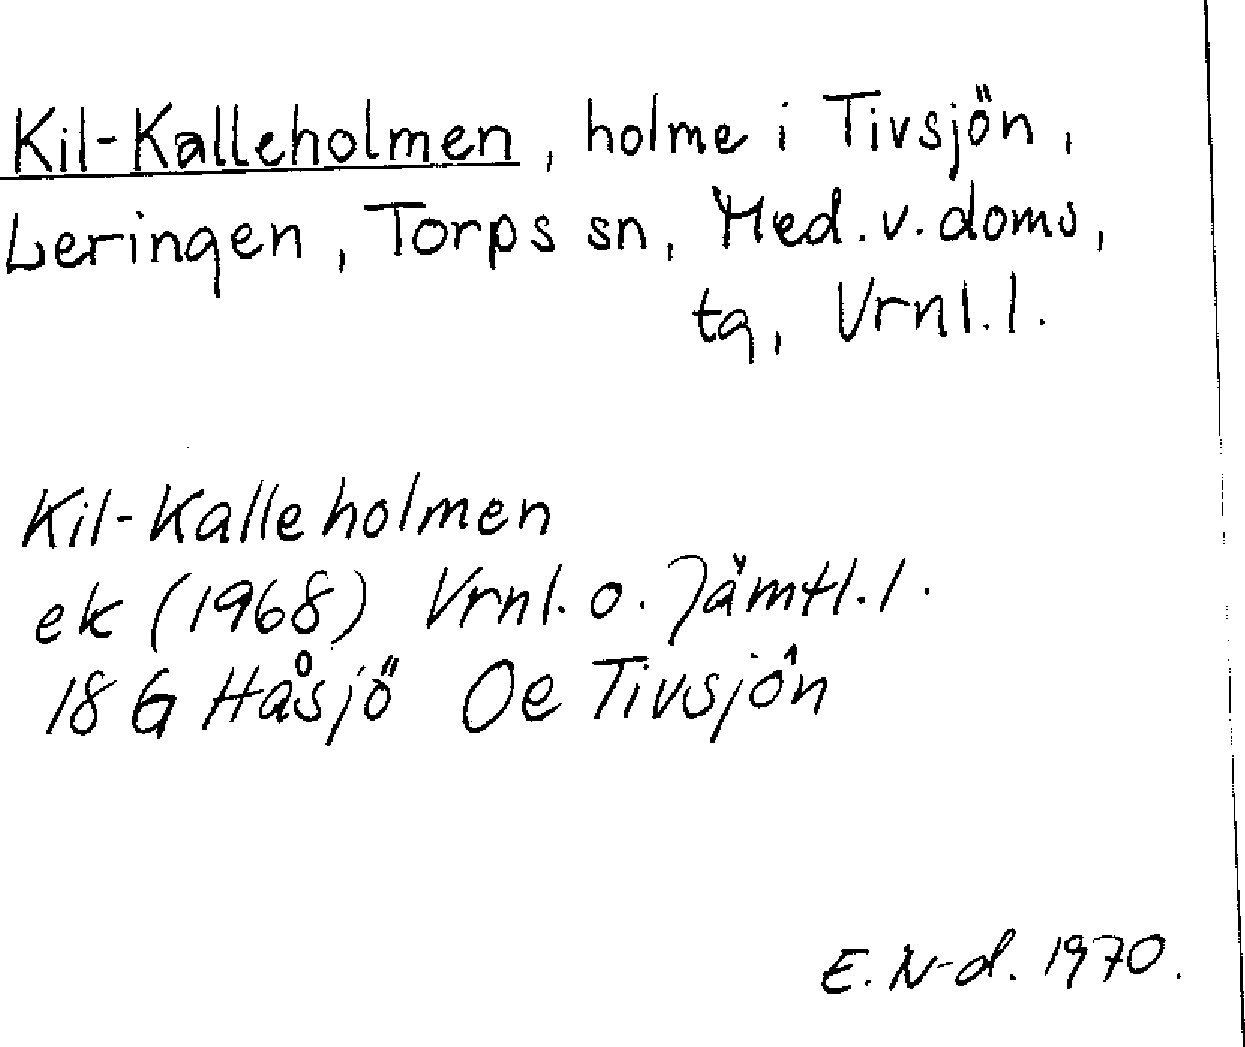 Kil-Kalleholmen, holme i Tivsjön,
Leringen, Torps sn, Med. v. doms,
tg, Vrnl. l.
Kil-Kalleholmen
ek (1968) Vrnl. o. Jämtl. l.
18 G Håsjö Oe Tivsjön
E. N-d. 1970.